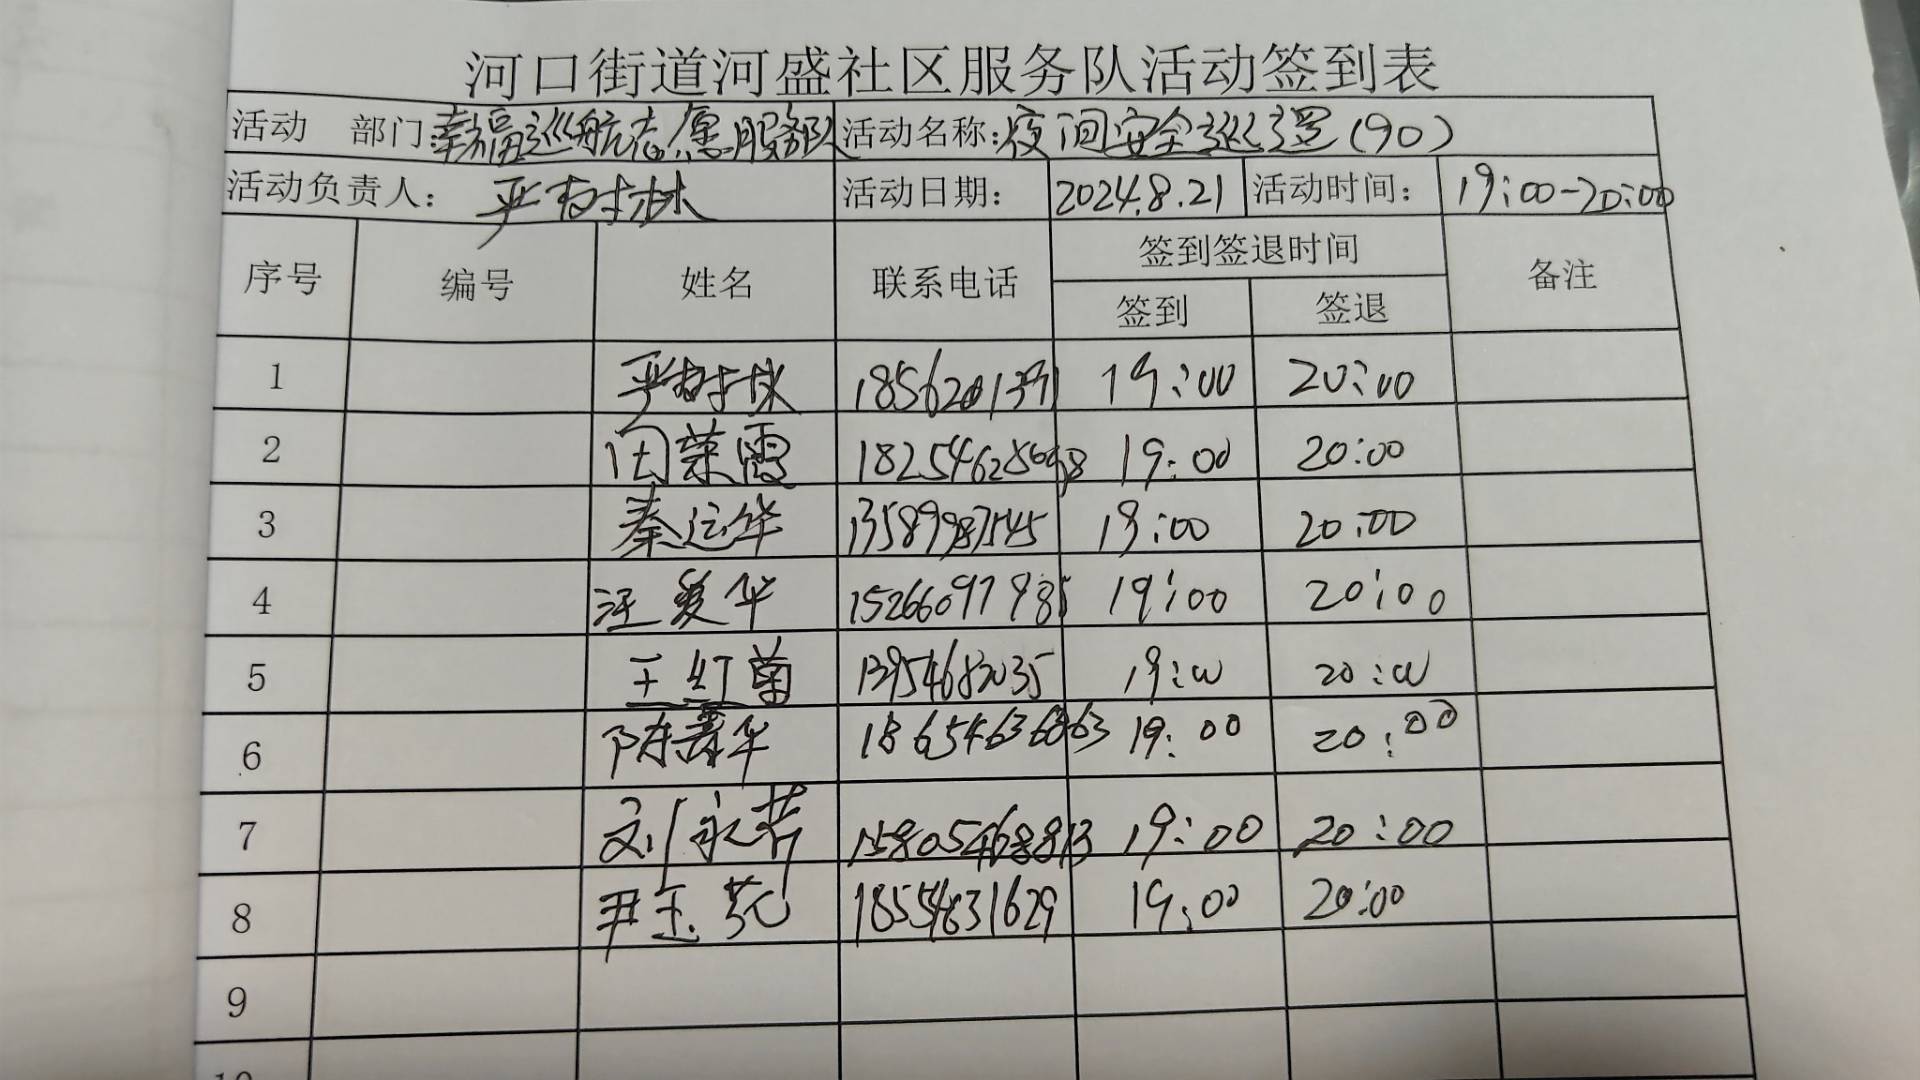 河口街道河盛社区服务队活动签到表
活动 部门:幸福巡航志愿服务队 活动名称:夜间安全巡逻(90)
活动负责人: 严树林 活动日期: 2024.8.21 活动时间: 19:00-20:00
序号 编号 姓名 联系电话 签到签退时间 备注
签到 签退
1 严树林 19:00 20:00
2 田荣霞 19:00 20:00
3 秦运华 13589987545 19:00 20:00
4 汪爱华 19:00 20:00
5 王红菊 13954683035 19:00 20:00
6 陈霞华 18654636863 19:00 20:00
7 刘永芳 15805468813 19:00 20:00
8 尹玉苑 18554631629 19:00 20:00
9
10